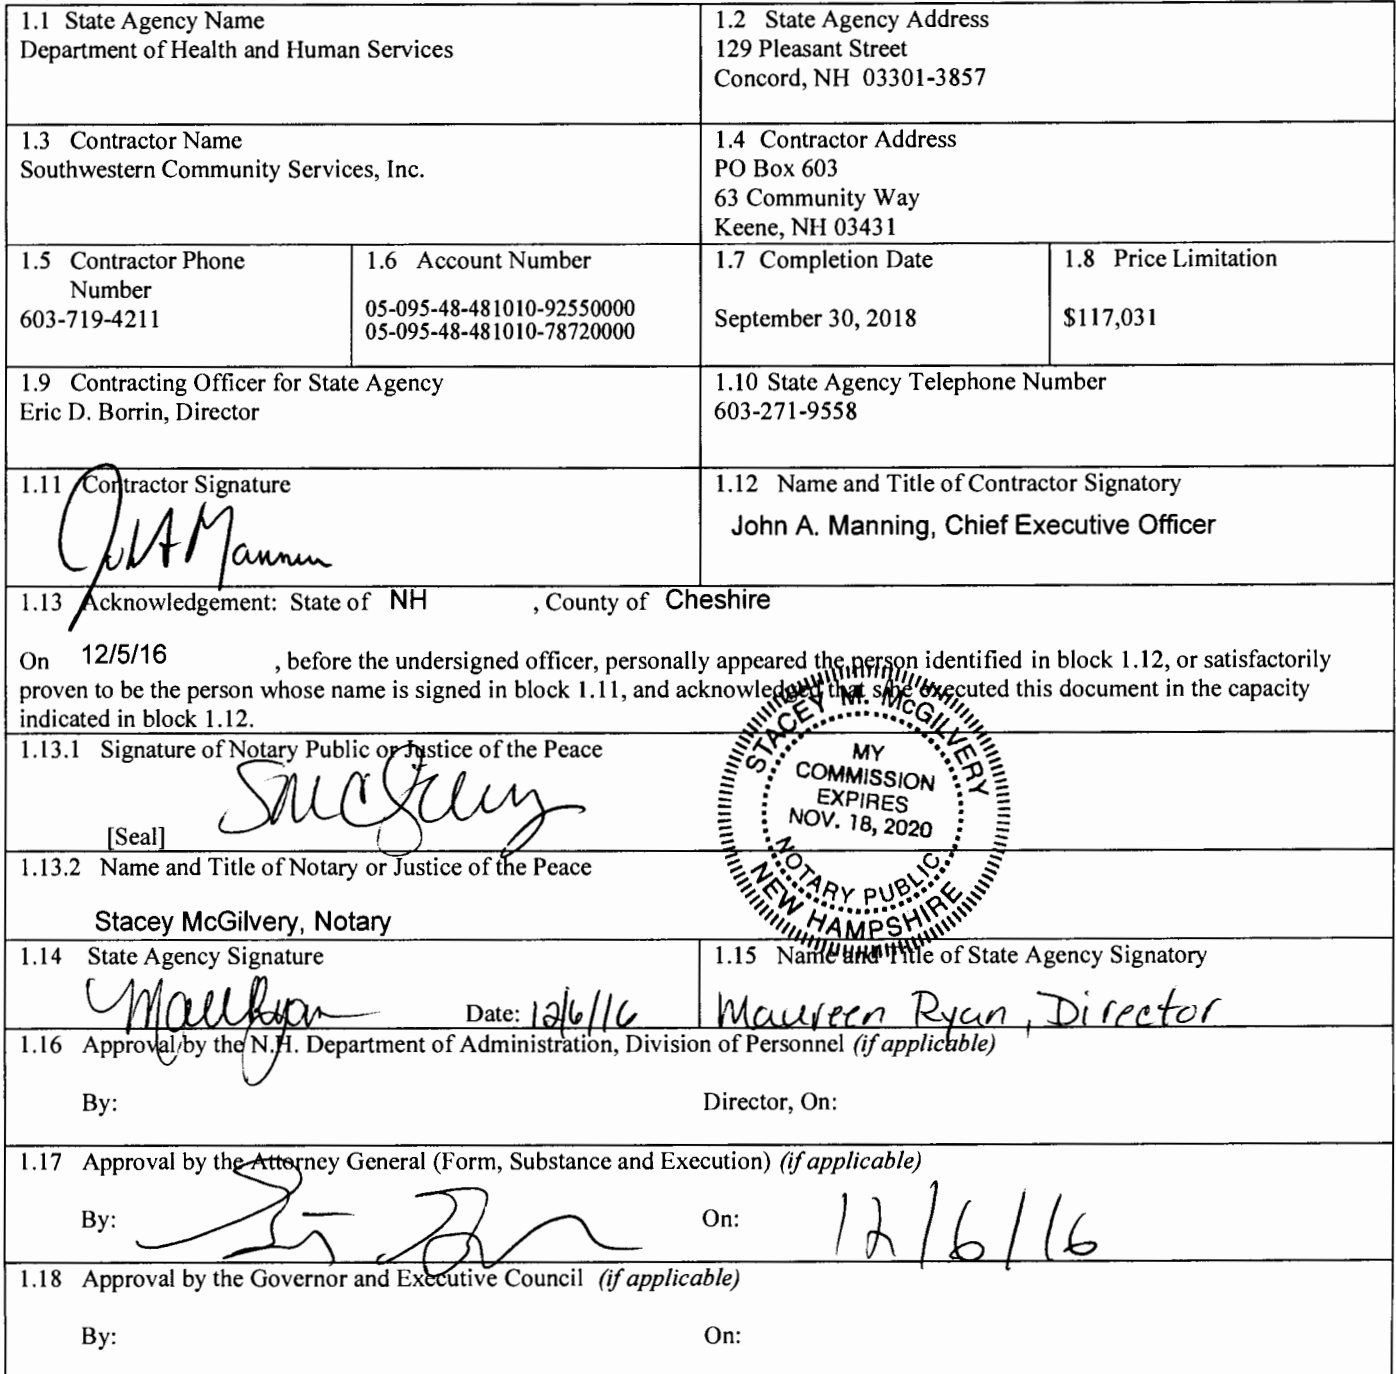 1.1 State Agency Name
Department of Health and Human Services
1.2 State Agency Address
129 Pleasant Street
Concord, NH 03301-3857
1.3 Contractor Name
Southwestern Community Services, Inc.
1.4 Contractor Address
PO Box 603
63 Community Way
Keene, NH 03431
1.5 Contractor Phone
Number
603-719-4211
1.6 Account Number
05-095-48-481010-92550000
05-095-48-481010-78720000
1.7 Completion Date
September 30, 2018
1.8 Price Limitation
$117,031
1.9 Contracting Officer for State Agency
Eric D. Borrin, Director
1.10 State Agency Telephone Number
603-271-9558
1.11 Contractor Signature
1.12 Name and Title of Contractor Signatory
John A. Manning, Chief Executive Officer
1.13 Acknowledgement: State of NH , County of Cheshire
On 12/5/16 , before the undersigned officer, personally appeared the person identified in block 1.12, or satisfactorily
proven to be the person whose name is signed in block 1.11, and acknowledged that s/he executed this document in the capacity
indicated in block 1.12.
1.13.1 Signature of Notary Public or Justice of the Peace
[Seal]
STACEY M. McGILVERY
MY
COMMISSION
EXPIRES
NOV. 18, 2020
NOTARY PUBLIC
NEW HAMPSHIRE
1.13.2 Name and Title of Notary or Justice of the Peace
Stacey McGilvery, Notary
1.14 State Agency Signature
Date: 12/6/16
1.15 Name and Title of State Agency Signatory
Maureen Ryan, Director
1.16 Approval by the N.H. Department of Administration, Division of Personnel (if applicable)
By: Director, On:
1.17 Approval by the Attorney General (Form, Substance and Execution) (if applicable)
By: On: 12/6/16
1.18 Approval by the Governor and Executive Council (if applicable)
By: On: